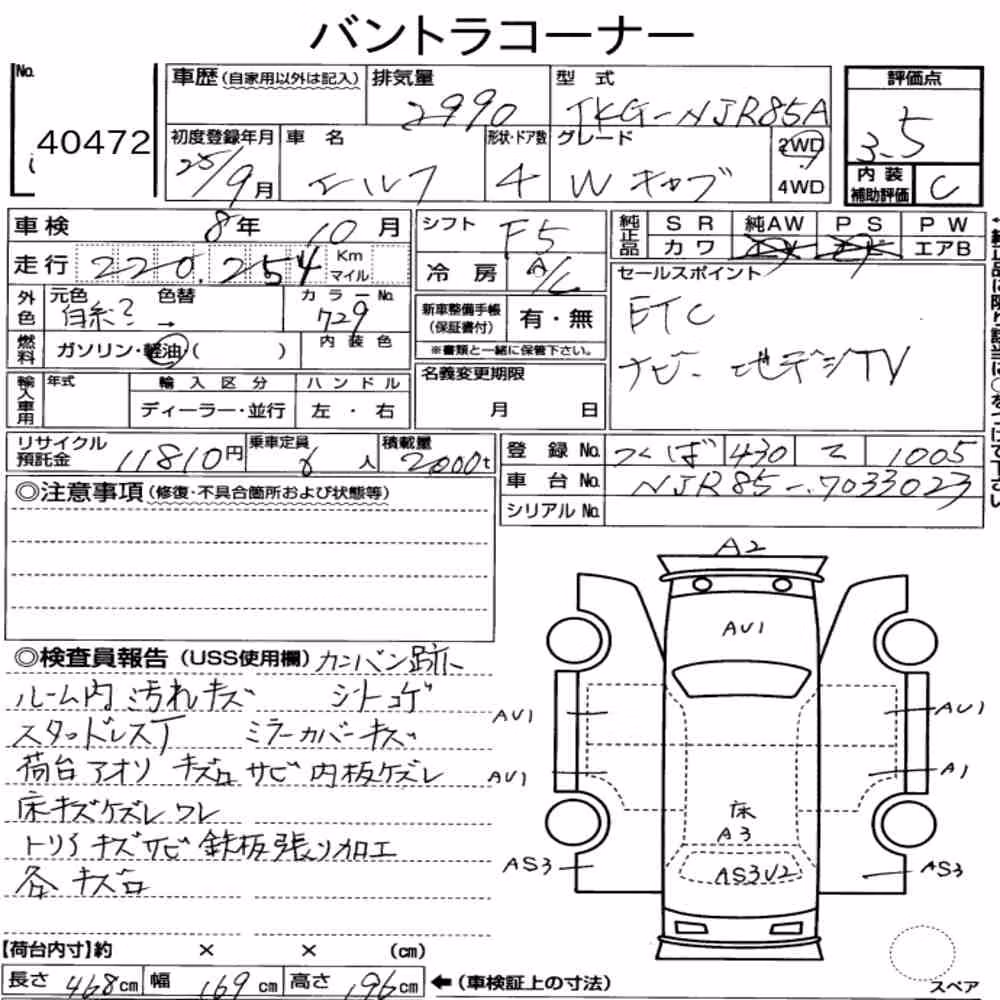 バントラコーナー
No. 40472
車歴 (自家用以外は記入)
排気量 2990
型式 TKG-NJR85A
評価点 3.5
初度登録年月 25/9月
車名 エルフ
形状・ドア数 4
グレード Wキャブ
2WD
4WD
内装補助評価 C
車検 8年 10月
シフト F5
純正品 SR 純AW PS PW
カワ エアB
走行 220.254 Km マイル
冷房 A/C
セールスポイント
ETC
ナビー地デジTV
外色 元色 白系? 色替 → カラーNo. 729
新車整備手帳 (保証書付) 有・無
※書類と一緒に保管下さい。
燃料 ガソリン・軽油・( ) 内装色
名義変更期限
月 日
輸入車用 年式 輸入区分 ハンドル
ディーラー・並行 左・右
リサイクル預託金 11810円
乗車定員 6人
積載量 2000t
登録No. つくば 430 て 1005
車台No. NJR85-7033023
シリアルNo.
◎注意事項 (修復・不具合箇所および状態等)
◎検査員報告 (USS使用欄) カンバン跡
ルーム内汚れキズ シートコゲ
スタッドレスT ミラーカバーキズ
荷台アオリ キズ凹サビ内板ケズレ
床キズケズレワレ
トリイキズサビ鉄板張り加工
各キズ凹
A2
AU1
AU1
AU1
AU1
A1
床
A3
AS3
AS3U2
AS3
【荷台内寸】約 × × (cm)
長さ 468cm 幅 169cm 高さ 196cm ←(車検証上の寸法)
スペア